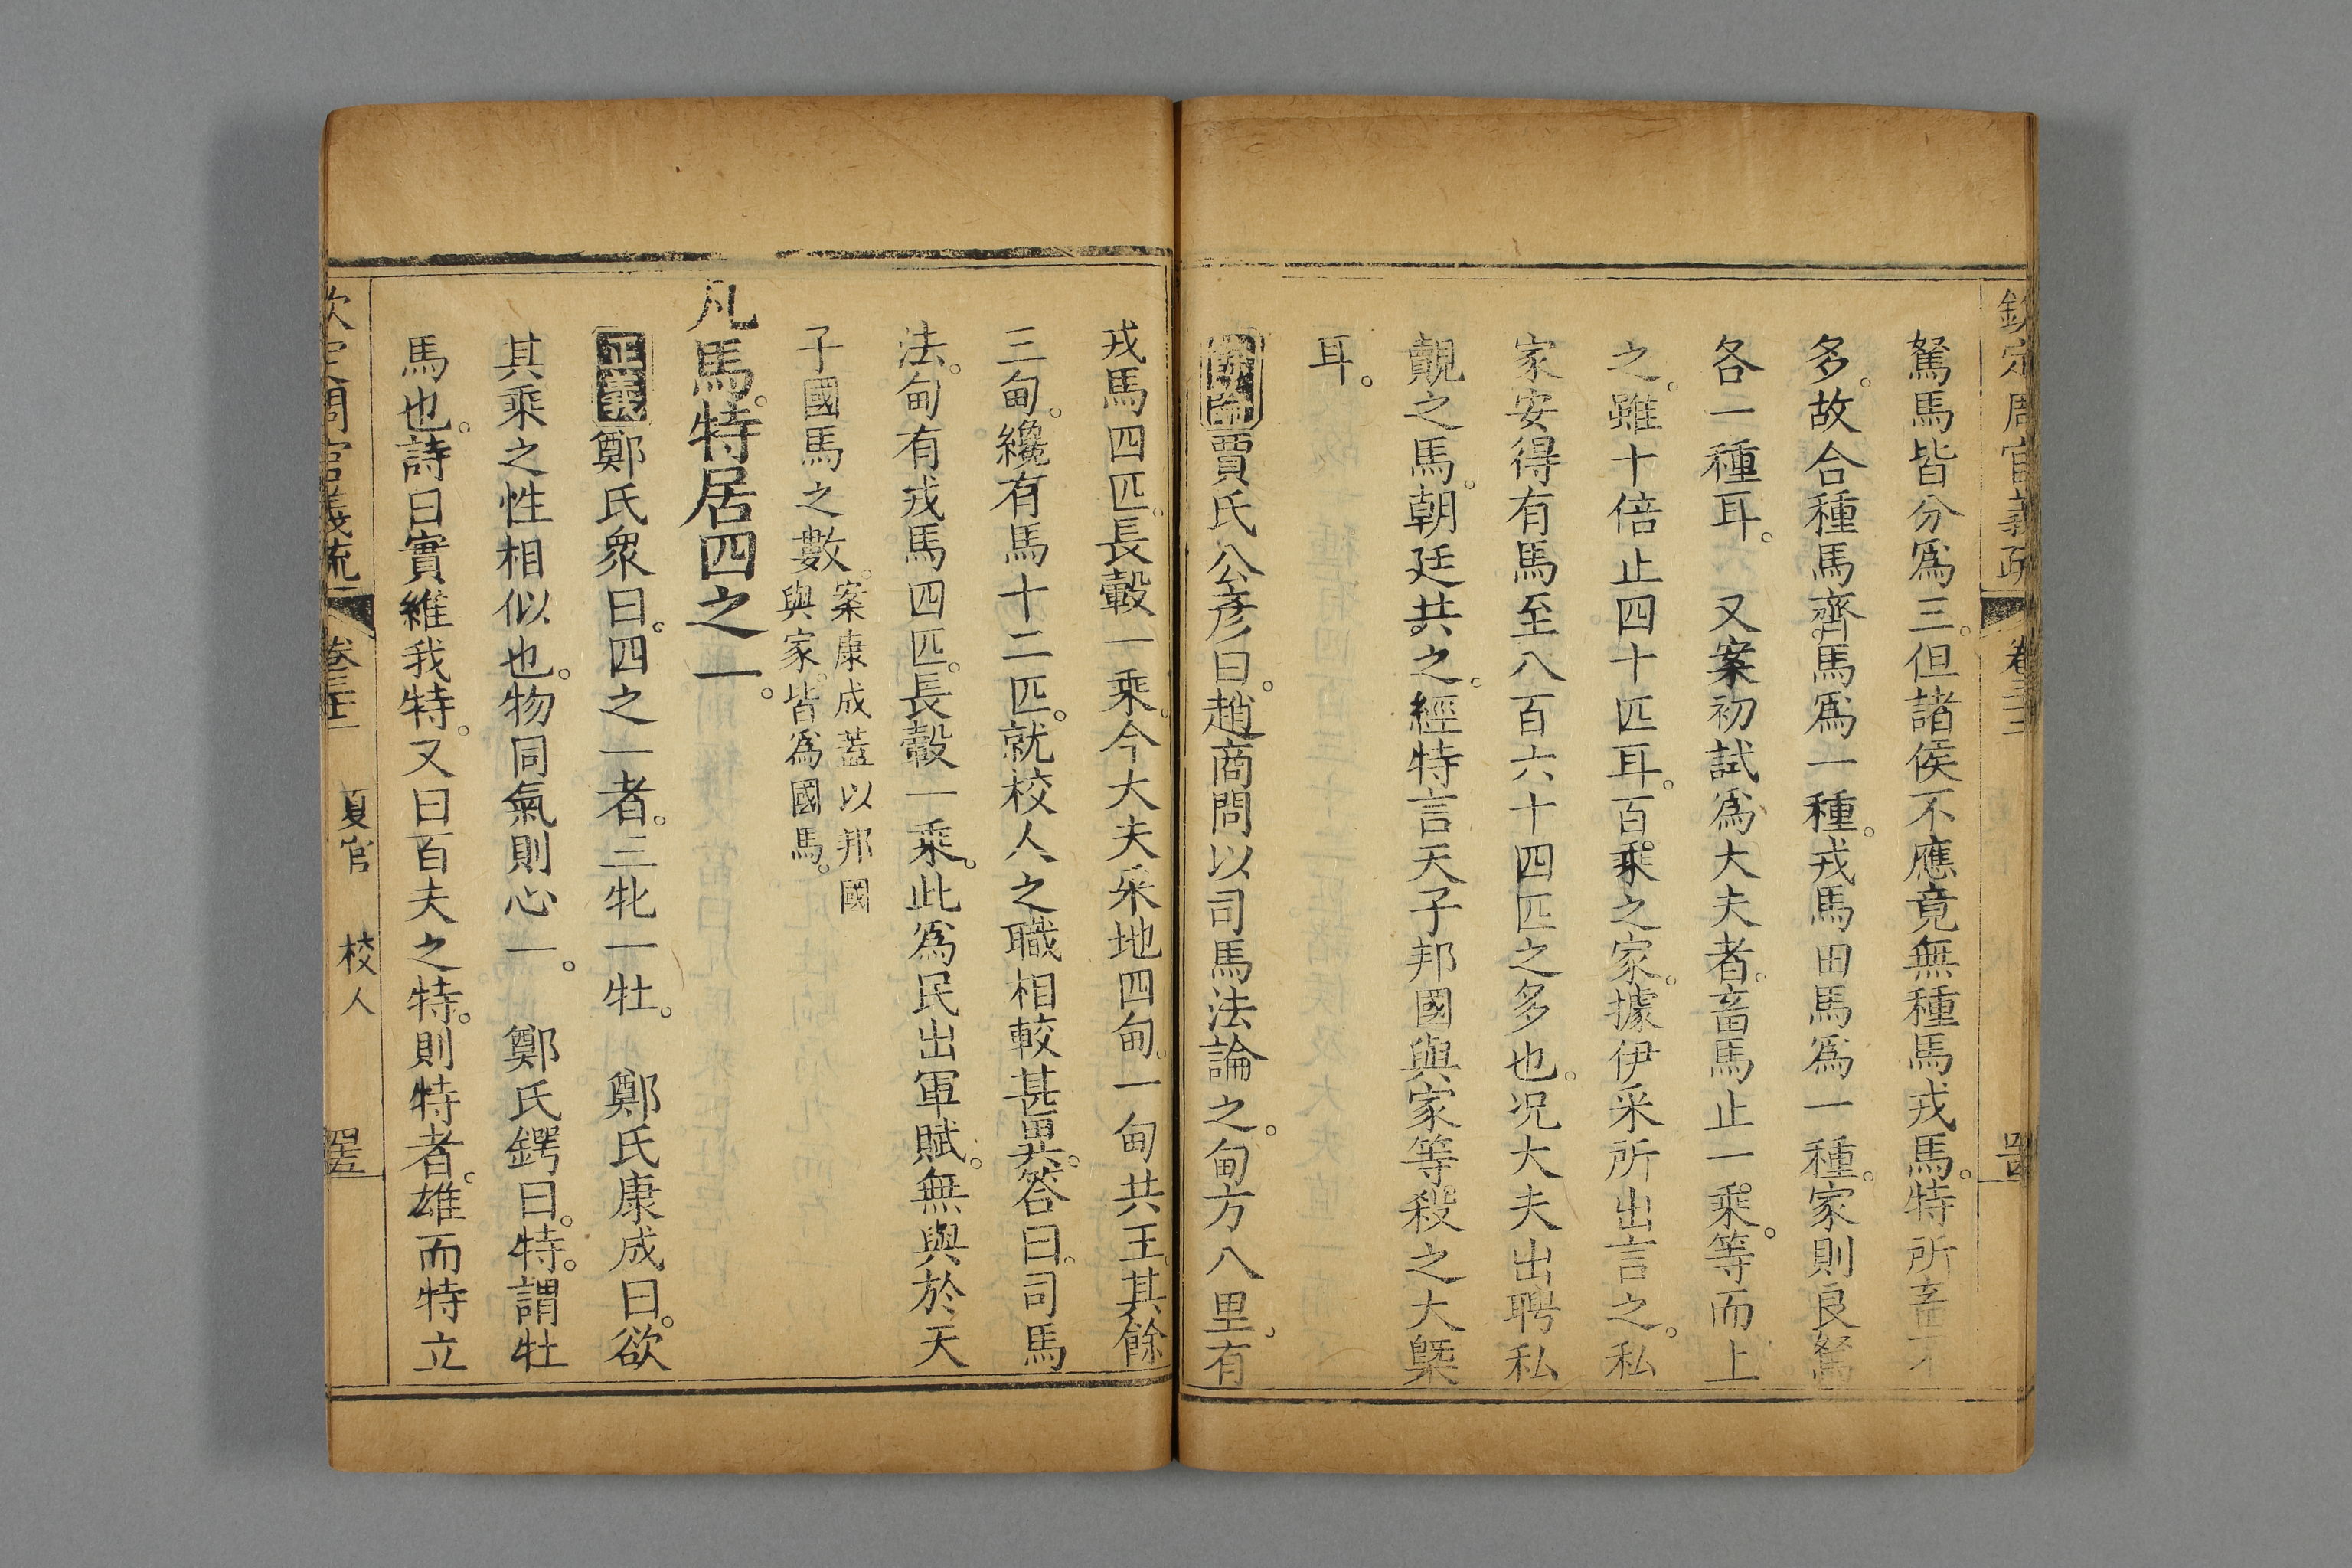 欽定周官義疏 卷三十二
駑馬皆分爲三。但諸侯不應竟無種馬戎馬。特所畜不
多。故合種馬齊馬爲一種。戎馬田馬爲一種。家則良駑
各一種耳。 又案初試爲大夫者。畜馬止一乘。等而上
之。雖十倍止四十匹耳。百乘之家。據伊采所出言之。私
家安得有馬至八百六十四匹之多也。况大夫出聘私
覿之馬。朝廷共之。經特言天子邦國與家等殺之大槩
耳。
餘論賈氏公彥曰。趙商問以司馬法論之。甸方八里。有
戎馬四匹。長轂一乘。今大夫采地四甸。一甸共王。其餘
三甸。纔有馬十二匹。就校人之職相較甚異。答曰。司馬
法。甸有戎馬四匹。長轂一乘。此爲民出軍賦。無與於天
子國馬之數。案康成蓋以邦國
與家。皆爲國馬。
凡馬。特居四之一。
正義鄭氏衆曰。四之一者。三牝一牡。 鄭氏康成曰。欲
其乘之性相似也。物同氣則心一。 鄭氏鍔曰。特。謂牡
馬也。詩曰實維我特。又曰百夫之特。則特者。雄而特立
欽定周官義疏 卷三十二 夏官 校人